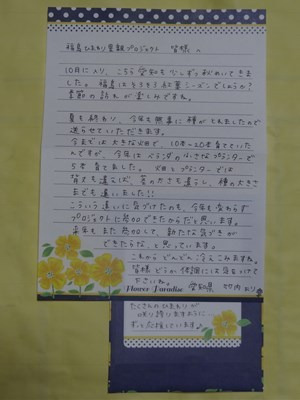 福島ひまわり里親プロジェクト 皆様へ
10月に入り、こちら愛知も少しずつ秋めいてきま
した。福島はそろそろ紅葉シーズンでしょうか?
季節の訪れが楽しみですね。
夏も終わり、今年も無事に種がとれましたので
送らせていただきます。
今までは大きな畑で、10本~20本育てていた
んですが、今年はベランダの小さなプランターで
5本育てました。畑とプランターでは
背丈も違えば、茎の太さも違うし、種の大きさ
までも違いました!!
こういう違いに気づけたのも、今年も変わらず
プロジェクトに参加できたからだと思います。
来年もまた参加して、新たな気づきが
できたらな、と思っています。
これからどんどん冷えこみますね。
皆様 どうか体調には気をつけて
下さいね。
愛知県
Flower Paradise
たくさんのひまわりが
咲き誇りますように…
ずっと応援しています♪